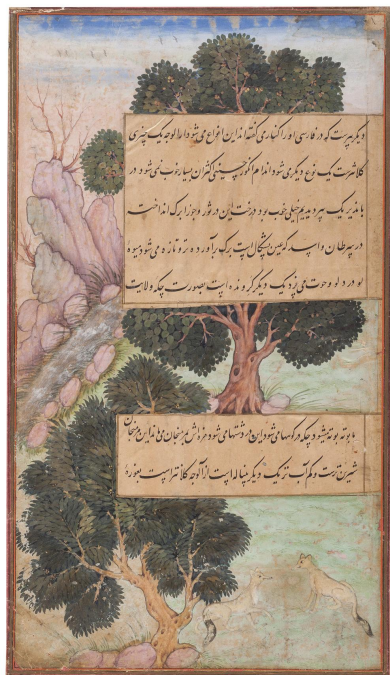 دیگر بیرست که در فارسی او را کناری گفته‌اند این انواع می‌شود از الوجه یک چیزی
کلانترست یک نوع دیگر می‌شود اندام انکور حسینی اکثر آن بسیار خوب نمی‌شود در
یک بیر دیدیم خیلی خوب بود درخت این در ثور و جوزا برک انداخته
در سرطان و اسد که عین پشکال است برک برآورده تر و تازه می‌شود میوه
او در دلو و حوت می‌پزد یک دیگر کرونده است بصورت چکه ولایت
ما بوته بوته میشود چکه در کوهها می‌شود این در دشتها می‌شود مزه‌اش بمرمنجان می‌ماند این از مرمنجان
شیرین‌ترست و کم آب‌تر یک دیگر پنیاله است از آلوجه کلانتر است